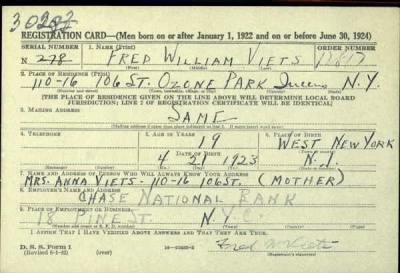 30282
REGISTRATION CARD—(Men born on or after January 1, 1922 and on or before June 30, 1924)
SERIAL NUMBER 1. NAME (Print) ORDER NUMBER
N 278 FRED WILLIAM VIETS 12817
2. PLACE OF RESIDENCE (Print)
110-16 106 ST. OZONE PARK Queens N.Y.
(Number and street) (Town, township, village, or city) (County) (State)
[THE PLACE OF RESIDENCE GIVEN ON THE LINE ABOVE WILL DETERMINE LOCAL BOARD
JURISDICTION; LINE 2 OF REGISTRATION CERTIFICATE WILL BE IDENTICAL]
3. MAILING ADDRESS
SAME
[Mailing address if other than place indicated on line 2. If same insert word same]
4. TELEPHONE 5. AGE IN YEARS 6. PLACE OF BIRTH
19 WEST NEW YORK
DATE OF BIRTH
4 21 1923 N.J.
(Exchange) (Number) (Mo.) (Day) (Yr.) (State or country)
7. NAME AND ADDRESS OF PERSON WHO WILL ALWAYS KNOW YOUR ADDRESS
MRS. ANNA VIETS- 110-16 106 ST. (MOTHER)
8. EMPLOYER'S NAME AND ADDRESS
CHASE NATIONAL BANK
9. PLACE OF EMPLOYMENT OR BUSINESS
18 PINE ST. N.Y.C.
(Number and street or R. F. D. number) (Town) (County) (State)
I AFFIRM THAT I HAVE VERIFIED ABOVE ANSWERS AND THAT THEY ARE TRUE.
D. S. S. Form 1
(Revised 6-9-42) (over) Fred W Viets
(Registrant's signature)